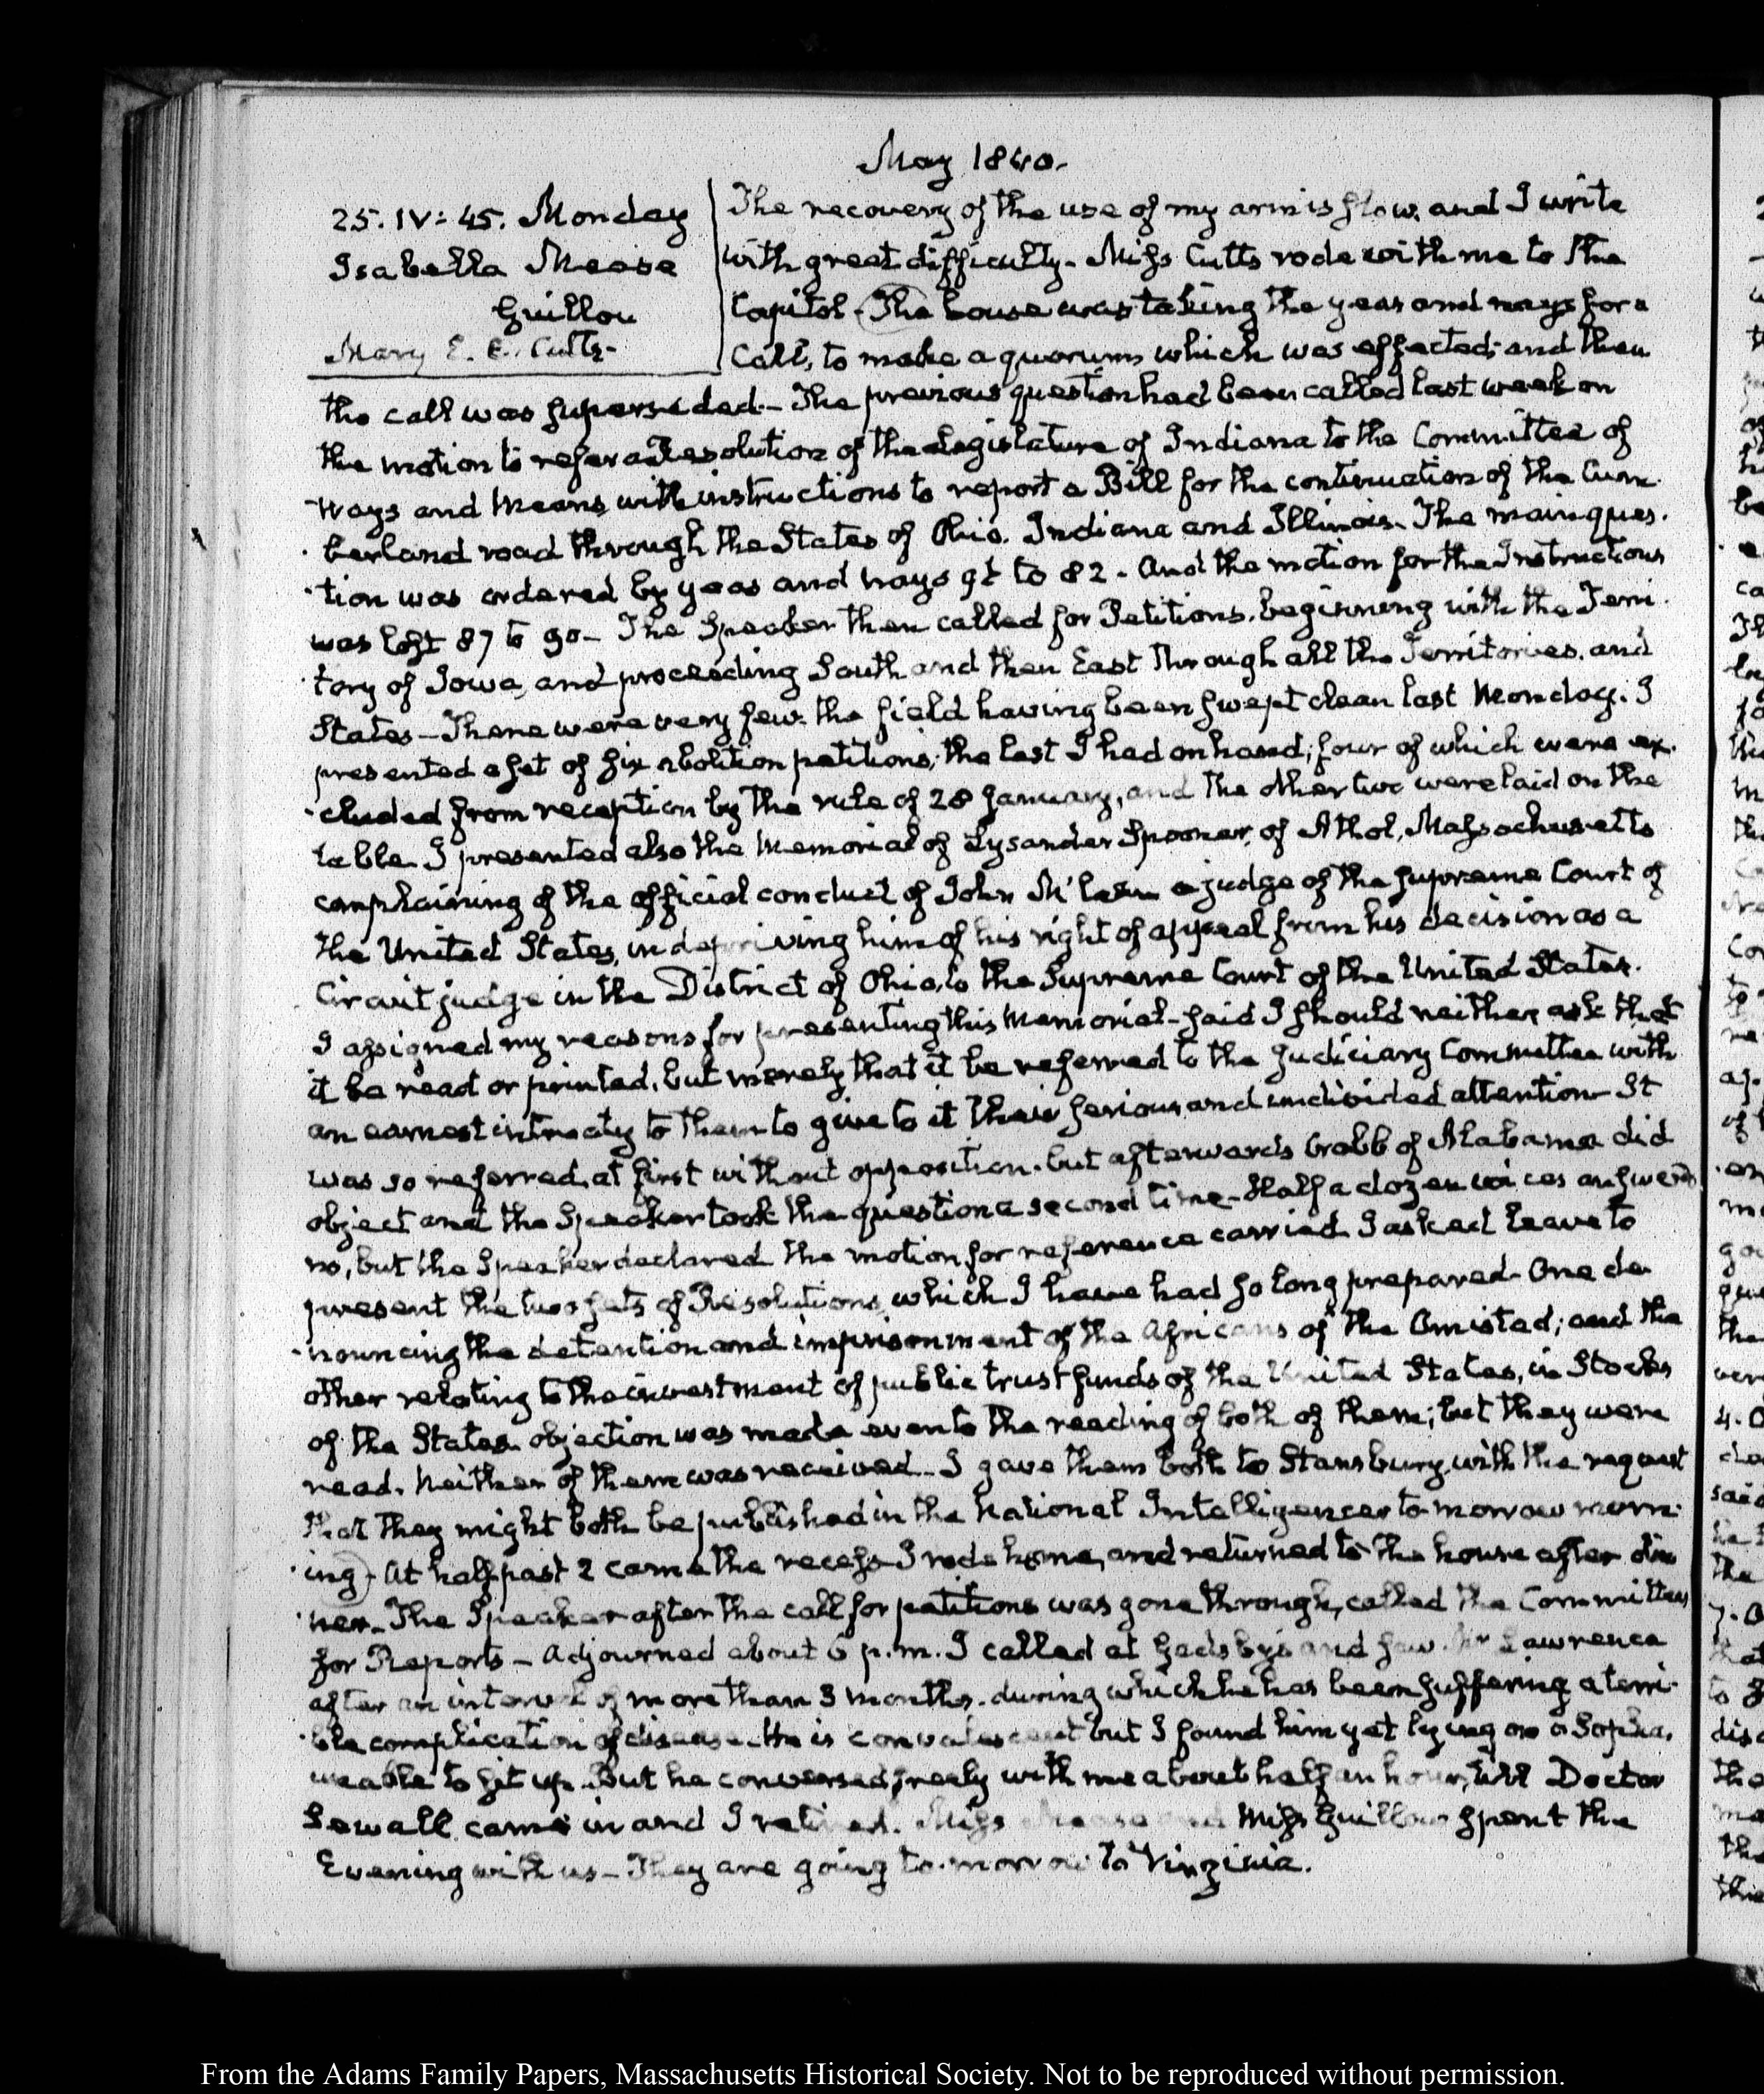 May 1840.
25. IV: 45. Monday
Isabella Mease
Guillou
Mary E. E. Cutts.
The recovery of the use of my arm is slow, and I write
with great difficulty. Miss Cutts rode with me to the
Capitol. The house was taking the yeas and nays for a
Call, to make a quorum, which was effected; and then
the call was superseded.— The previous question had been called last week on
the motion to refer a Resolution of the Legislature of Indiana to the Committee of
Ways and Means with instructions to report a Bill for the continuation of the Cum-
-berland road through the States of Ohio. Indiana and Illinois. The main ques-
-tion was ordered by yeas and nays 92 to 82. And the motion for the Instructions
was lost 87 to 90— The Speaker then called for Petitions, beginning with the Terri-
-tory of Iowa, and proceeding South and then East through all the Territories, and
States— There were very few. the field having been swept clean last Monday. I
presented a set of six abolition petitions; the last I had on hand; four of which were ex-
-cluded from reception by the rule of 28 January, and the other two were laid on the
table. I presented also the Memorial of Lysander Spooner, of Athol, Massachusetts
complaining of the official conduct of John M'lean a judge of the Supreme Court of
the United States, in depriving him of his right of appeal from his decision as a
Circuit judge in the District of Ohio, to the Supreme Court of the United States.
I assigned my reasons for presenting this Memorial— said I should neither ask that
it be read or printed, but merely that it be referred to the Judiciary Committee with
an earnest intreaty to them to give to it their serious and undivided attention— It
was so referred, at first without opposition. but afterwards Crabb of Alabama did
object and the Speaker took the question a second time— Half a dozen voices answered
no, but the Speaker declared the motion for reference carried. I asked leave to
present the two sets of Resolutions, which I have had so long prepared— One de-
-nouncing the detention and imprisonment of the Africans of the Amistad; and the
other relating to the investment of public trust funds of the United States, in Stocks
of the States. objection was made even to the reading of both of them; but they were
read. Neither of them was received.— I gave them both to Stansbury, with the request
that they might both be published in the National Intelligencer to-morrow morn-
-ing— At half past 2 came the recess— I rode home, and returned to the house after din-
-ner— The Speaker after the call for petitions was gone through, called the Committees
for Reports— Adjourned about 6 p.m. I called at Gadsby's and saw Mr Lawrence
after an interval of more than 3 months. during which he has been suffering a terri-
-ble complication of disease— He is convalescent but I found him yet lying on a Sopha,
unable to sit up. But he conversed freely with me about half an hour, till Doctor
Sewall came in and I retired. Miss Mease and Miss Guillou spent the
Evening with us— They are going to-morrow to Virginia.
From the Adams Family Papers, Massachusetts Historical Society. Not to be reproduced without permission.